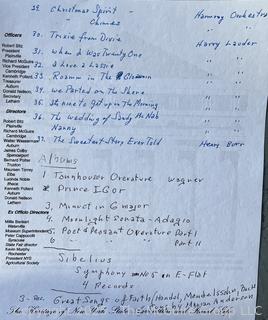 29. Christmas Spirit - Harmony Orchestra
" - Chimes " "
Officers
30. Trixie from Dixie
Robert Blitz
President
31. When I Was Twenty One Harry Lauder
Richard McGuire
Vice President
32. I Love a Lassie " "
Cambridge
Kenneth Pollard
33. Roamin in the Gloamin " "
Treasurer
Auburn
34. We Parted on the Shore " "
Donald Neilson
Secretary
35. She is to Get up in the Morning " "
Latham
Directors
36. The Wedding of Sandy McNab " "
Robert Blitz
37. Nanny " "
Richard McGuire
Cambridge
Walter Wasserman
39. The Sweetest Story Ever Told Henry Burr
Auburn
Jessie Colby
Albums
Bernard Potter
Thurston
1 Tannhouser Overature Wagner
Maureen Torrey
Elba
2 Prince IGor
Ithaca
Kenneth Pollard
3, Minuet in G major
Auburn
Donald Neilson
4. Moonlight Sonata - Adagio
Latham
Ex Officio Directors
5. Poet & Peasant Overature Part 1
Millie Benkert
Waterville
6 " " " Part II
Museum Superintendent
Peter Cappuccilli
Syracuse
Sibelius
State Fair director
Symphony No 5 in E-Flat
Kevin Murphy
Rochester
4 Records
President NYS
Agricultural Society
3 - Rec. Great Songs of Faith/Handel, Mendelssohn, Bach
Sung by Marian Anderson
The Heritage of New York State